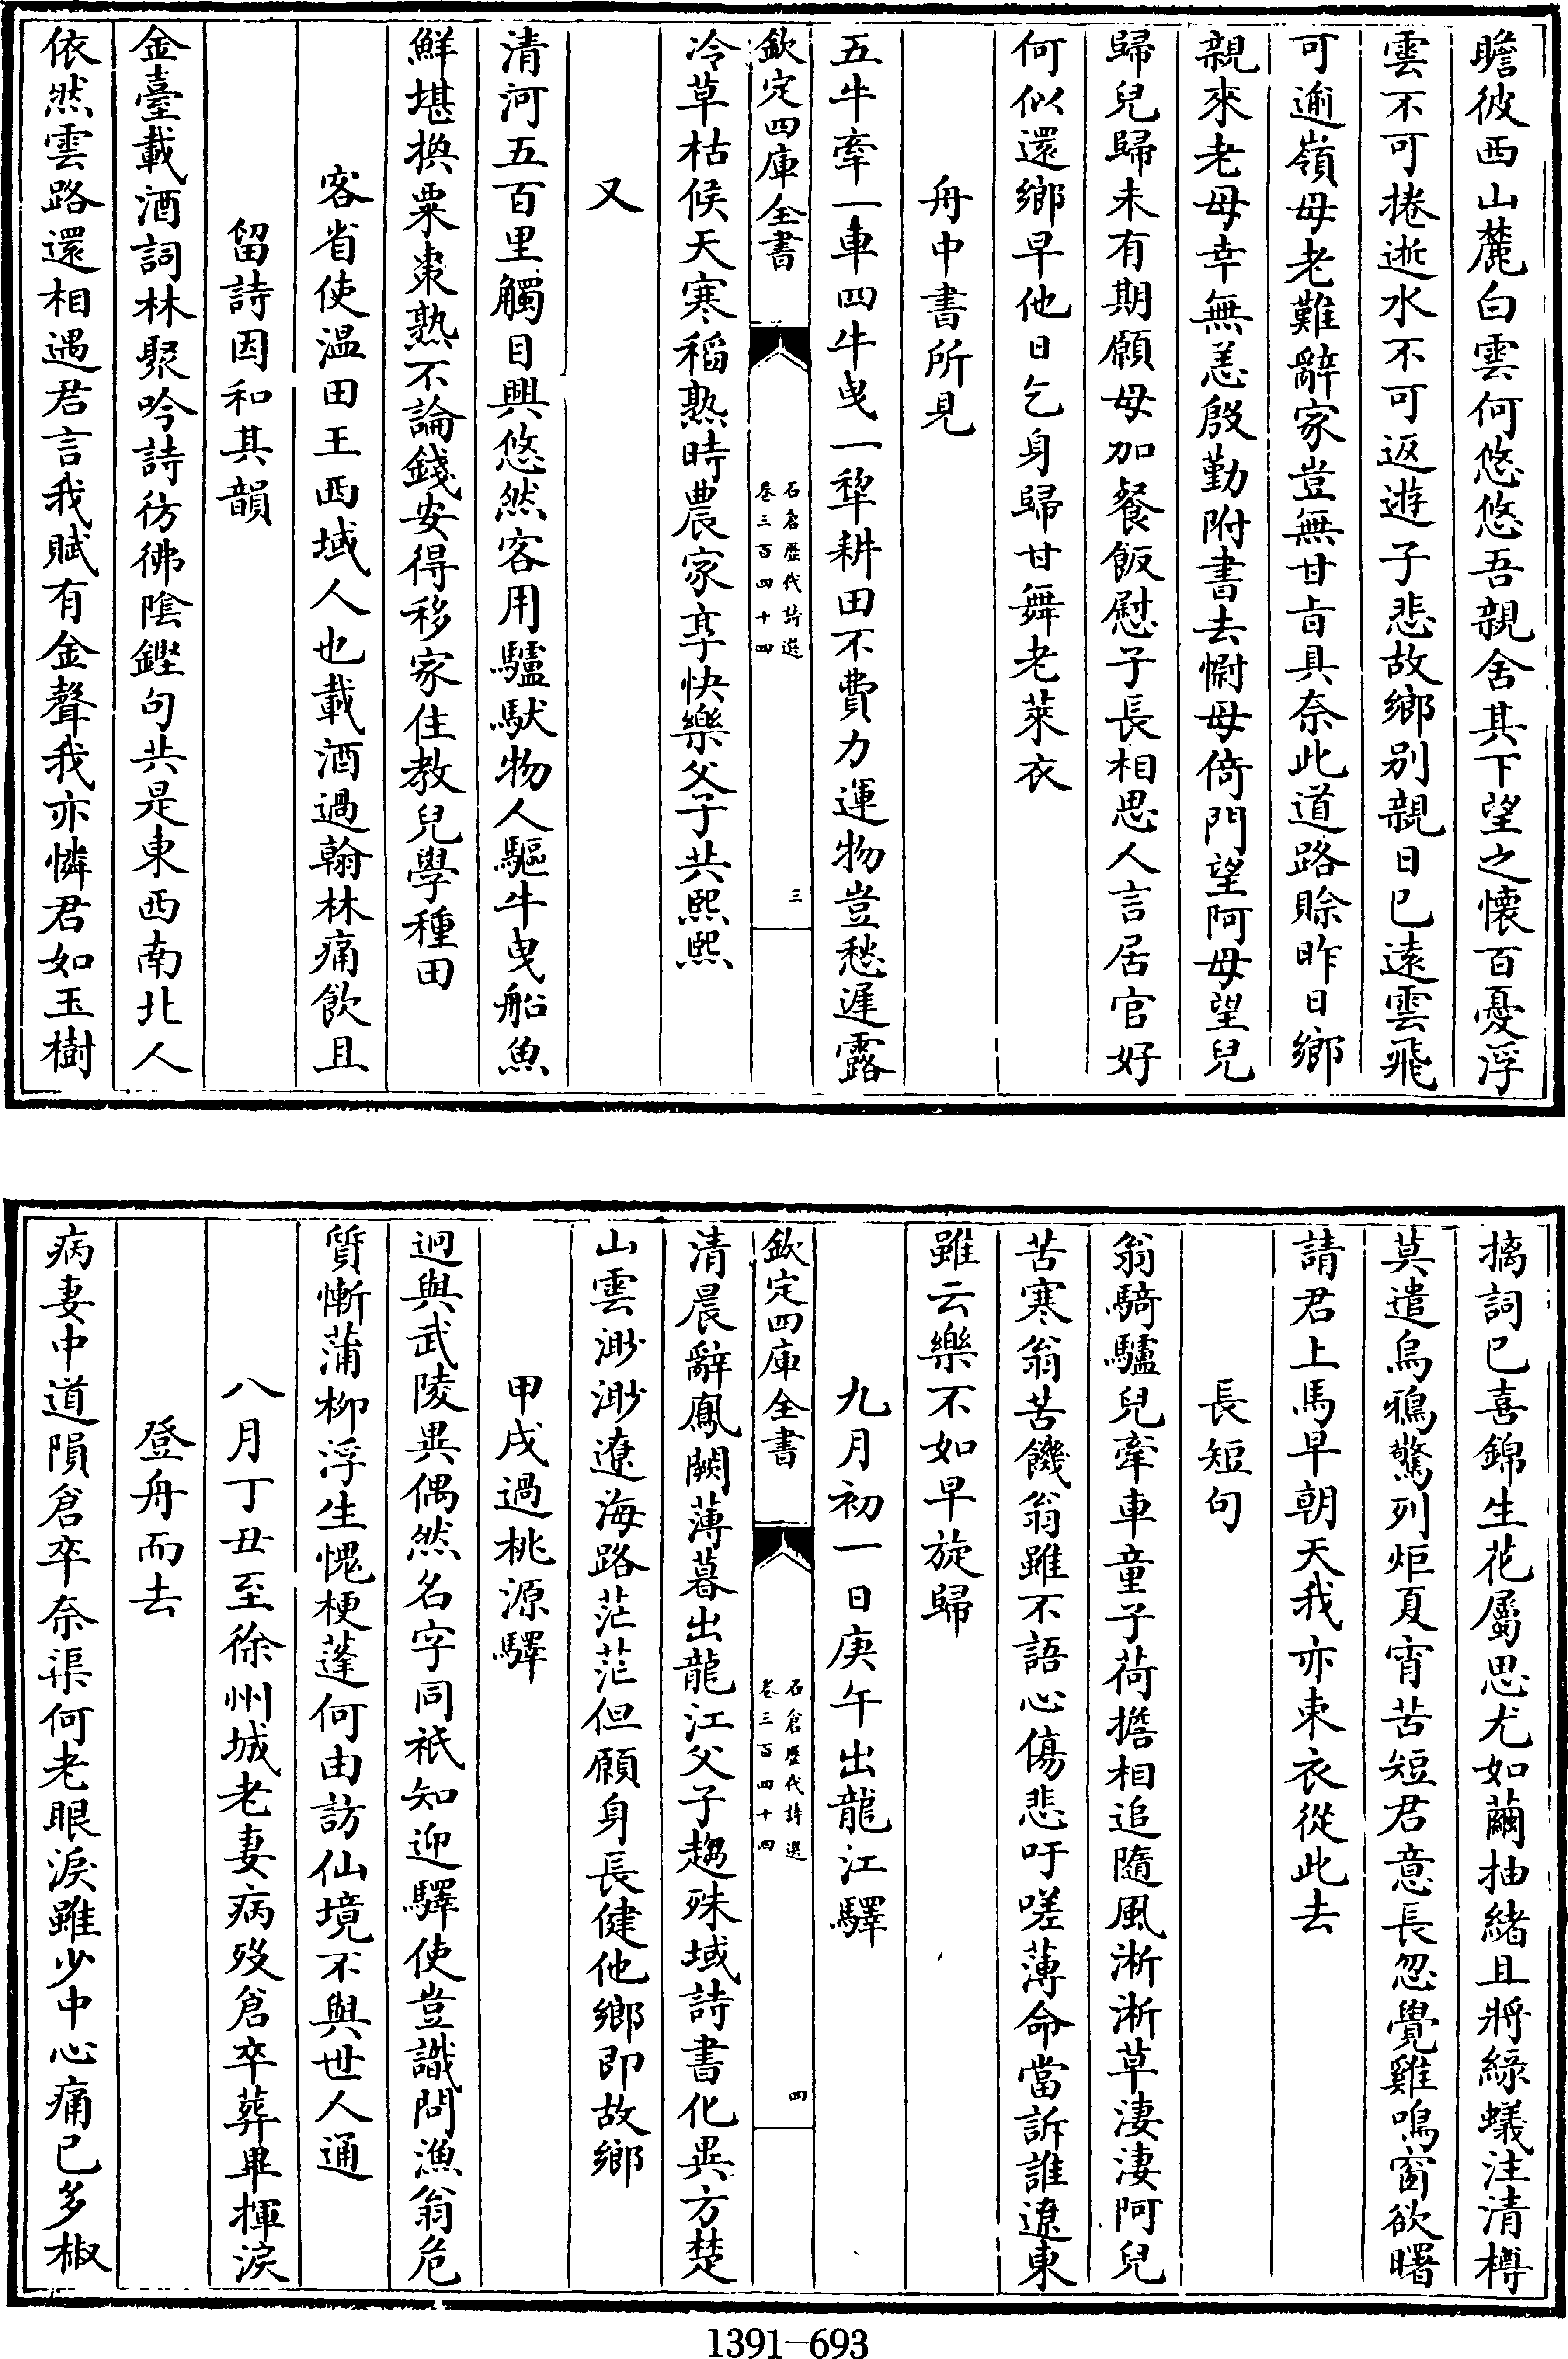 瞻彼西山麓白雲何悠悠吾親舍其下望之懷百憂浮
雲不可捲逝水不可返遊子悲故鄉别親日已遠雲飛
可逾嶺母老難辭家豈無甘旨具奈此道路賖昨日鄉
親來老母幸無恙殷勤附書去慰母倚門望阿母望兒
歸兒歸未有期願母加餐飯慰子長相思人言居官好
何似還鄉早他日乞身歸甘舞老萊衣
舟中書所見
五牛牽一車四牛曳一犂耕田不費力運物豈愁遲露
欽定四庫全書
石倉歷代詩選
卷三百四十四
三
冷草枯候天寒稻熟時農家享快樂父子共熙熙
又
清河五百里觸目興悠然客用驢馱物人驅牛曳船魚
鮮堪換粟棗熟不論錢安得移家住教兒學種田
客省使温田王西域人也載酒過翰林痛飲且
留詩因和其韻
金臺載酒詞林聚吟詩彷彿陰鏗句共是東西南北人
依然雲路還相遇君言我賦有金聲我亦憐君如玉樹
摛詞已喜錦生花屬思尤如繭抽緒且將綠蟻注清樽
莫遣烏鴉驚列炬夏宵苦短君意長忽覺雞鳴窗欲曙
請君上馬早朝天我亦束衣從此去
長短句
翁騎驢兒牽車童子荷擔相追隨風淅淅草淒淒阿兒
苦寒翁苦饑翁雖不語心傷悲吁嗟薄命當訴誰遼東
雖云樂不如早旋歸
九月初一日庚午出龍江驛
欽定四庫全書
石倉歷代詩選
卷三百四十四
四
清晨辭鳳闕薄暮出龍江父子趨殊域詩書化異方楚
山雲渺渺遼海路茫茫但願身長健他鄉即故鄉
甲戌過桃源驛
迥與武陵異偶然名字同祇知迎驛使豈識問漁翁危
質慚蒲柳浮生愧梗蓬何由訪仙境不與世人通
八月丁丑至徐州城老妻病歿倉卒葬畢揮淚
登舟而去
病妻中道隕倉卒奈渠何老眼淚雖少中心痛已多椒
1391-693